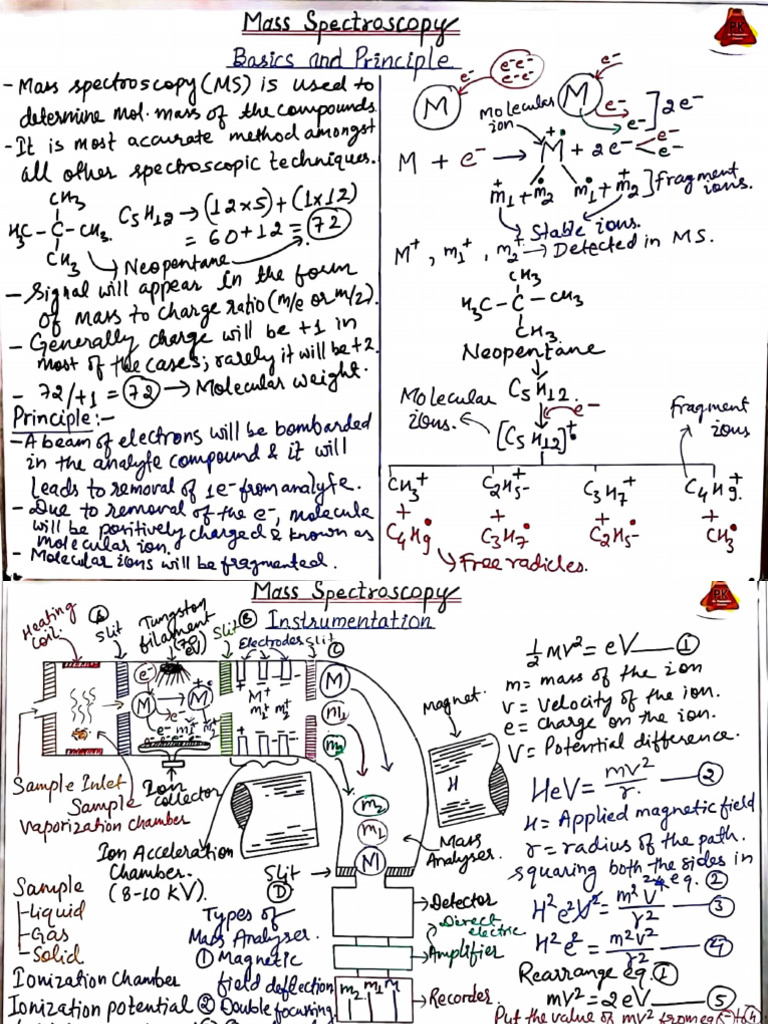 Mass Spectroscopy
Basics and Principle
- Mass spectroscopy (MS) is used to
determine mol. mass of the compounds
- It is most accurate method amongst
all other spectroscopic techniques.
CH₃
H₃C - C - CH₃
CH₃
C₅H₁₂ → (12×5) + (1×12)
= 60 + 12 = 72
Neopentane
- Signal will appear in the form
of mass to charge ratio (m/e or m/z).
- Generally charge will be +1 in
most of the cases; rarely it will be +2.
- 72/+1 = 72 → Molecular weight.
Principle :-
- A beam of electrons will be bombarded
in the analyte compound & it will
leads to removal of 1e⁻ from analyte.
- Due to removal of the e⁻, molecule
will be positively charged & known as
molecular ion.
- Molecular ions will be fragmented.
M e⁻ e⁻e⁻ e⁻e⁻
M e⁻ e⁻ e⁻ ] 2e⁻
Molecular
ion
M + e⁻ → M⁺• + 2e⁻ e⁻ e⁻
m₁⁺ + m₂• m₁• + m₂⁺ ] Fragment
ions.
Stable ions.
M⁺, m₁⁺, m₂⁺ → Detected in MS.
CH₃
H₃C - C - CH₃
CH₃
Neopentane
C₅H₁₂
e⁻
Molecular
ions.
[C₅H₁₂]⁺•
Fragment
ions
CH₃⁺ C₂H₅⁺ C₃H₇⁺ C₄H₉⁺
+ + + +
C₄H₉• C₃H₇• C₂H₅• CH₃•
Free radicles.
PK
Mass Spectroscopy
Instrumentation
Heating
coil
A
Slit
Tungston
filament
(70 eV)
Slit
B
Electrodes
Slit
C
e⁻
M M⁺
e⁻
e⁻ m₁⁺ m₂⁺
M⁺
m₁⁺ m₂⁺
M
m₁
m₂
Magnet.
H
Sample Inlet
Sample
vaporization chamber
Ion
collector
Ion Acceleration
Chamber.
(8-10 KV).
m₂
m₁
M
Mass
Analyser.
Slit
D
Detector
Direct
electric
Amplifier
Recorder.
m₂ m₁ M
Sample
- Liquid
- Gas
- Solid
Ionization Chamber
Ionization potential
Types of
Mass Analyser.
① Magnetic
field deflection
② Double focusing
½ mv² = eV — ①
m = mass of the ion
v = velocity of the ion.
e = charge on the ion.
V = Potential difference.
HeV = mv²/r. — ②
H = Applied magnetic field
r = radius of the path.
squaring both the sides in
eq. ②
H²e²V² = m²V⁴/r² — ③
H²e² = m²v²/r² — ④
Rearrange eq. ①
mv² = 2eV — ⑤
Put the value of mv² from eq